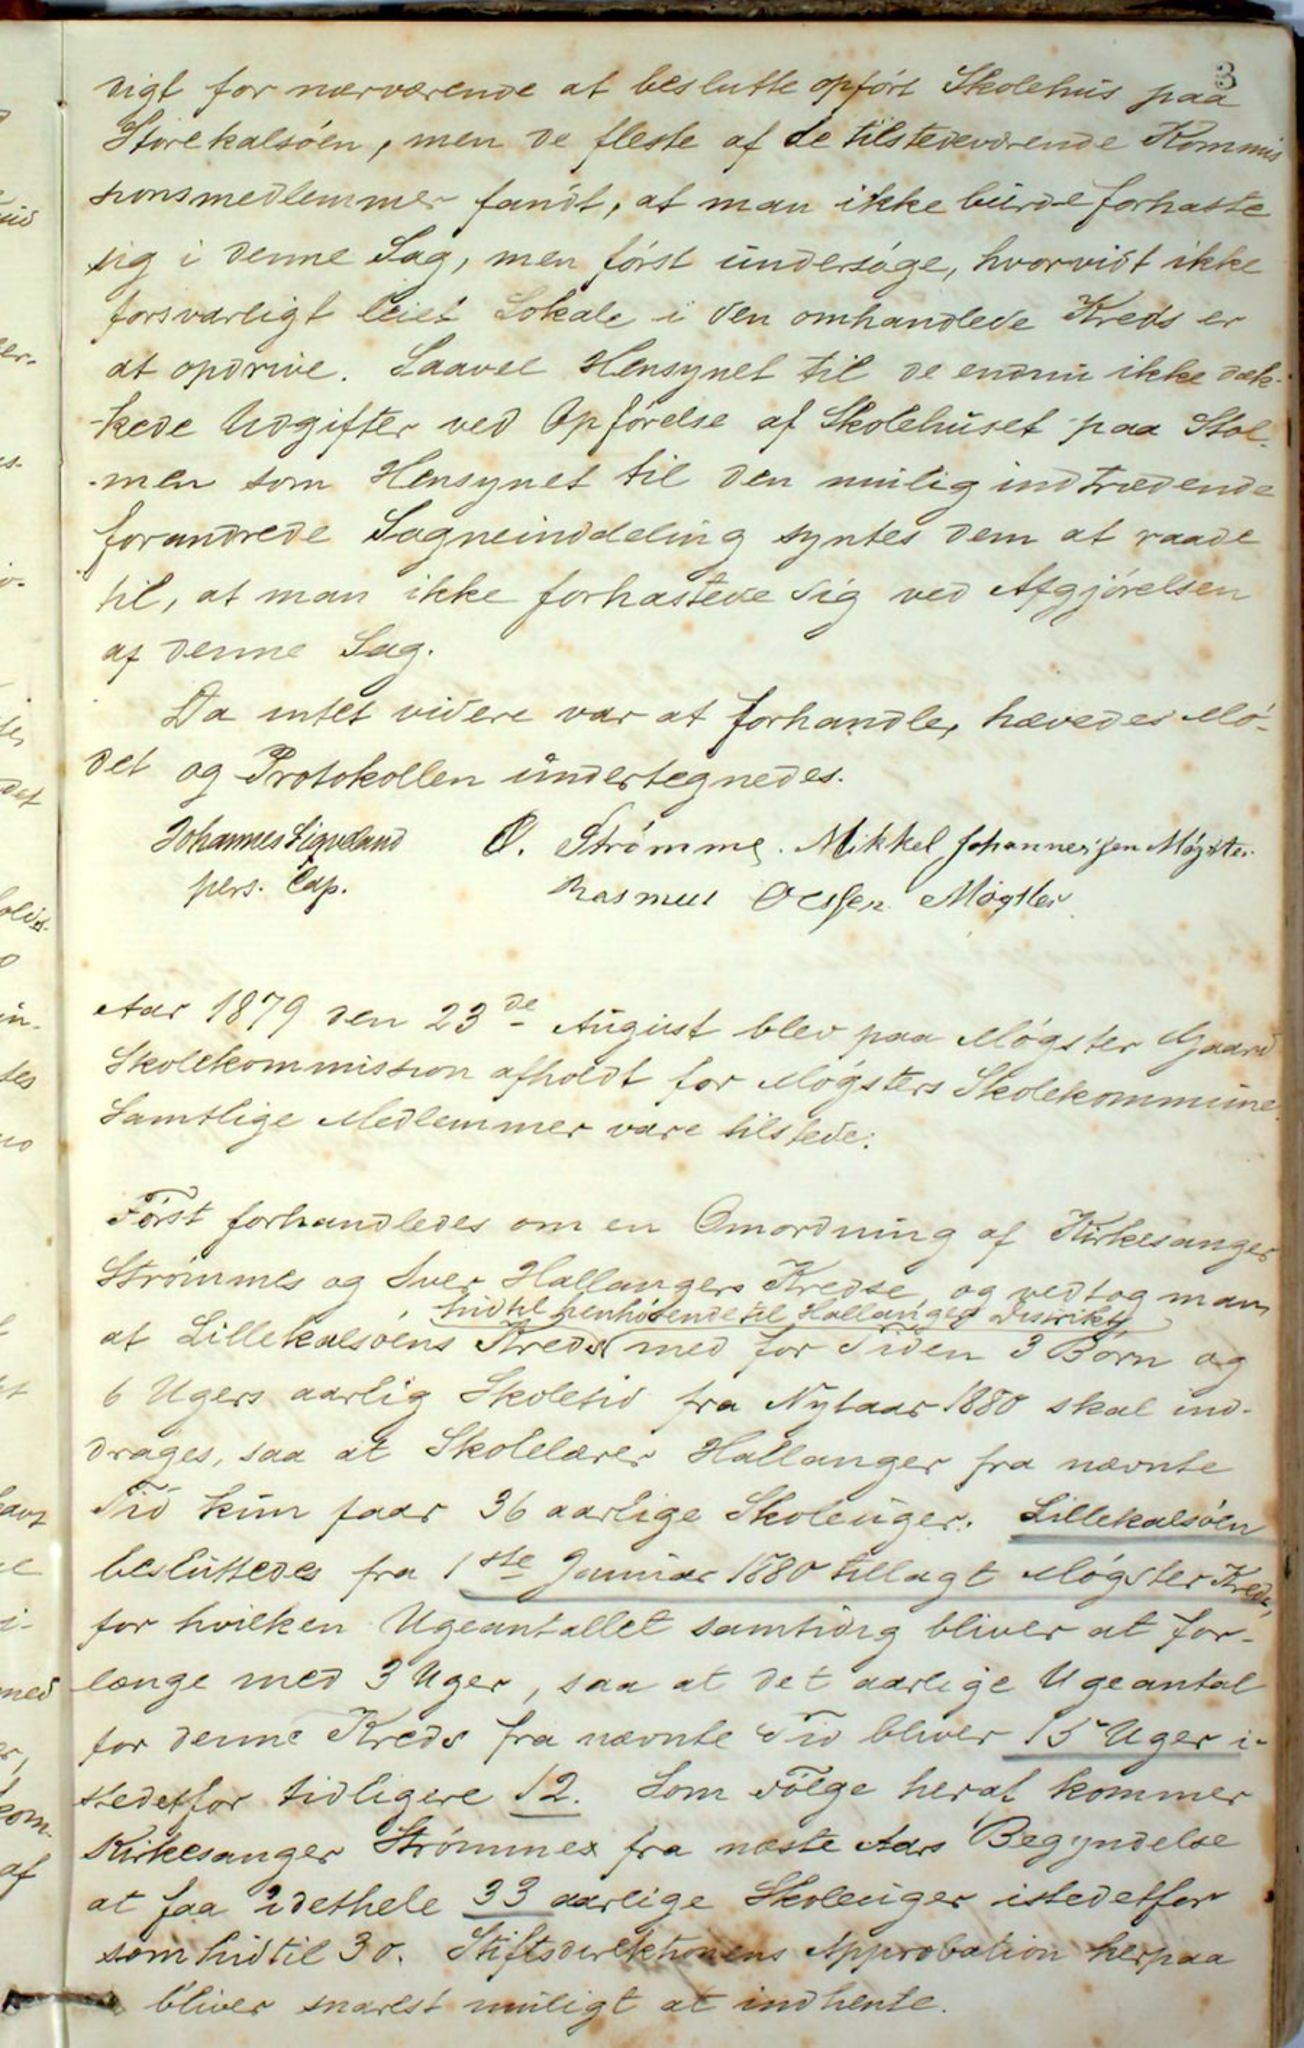 3
digt for nærværende at beslutte opført Skolehus paa
Storekalsøen, men de fleste af de tilstedeværende Kommis
sionsmedlemmer fandt, at man ikke burde forhaste
sig i denne Sag, men først undersøge, hvorvidt ikke
forsvarligt leiet Lokale i den omhandlede Kreds er
at opdrive. Saavel Hensynet til de endnu ikke dæk-
-kede Udgifter ved Opførelse af Skolehuset paa Stol-
-men som Hensynet til den mulig indtrædende
forandrede Sogneinddeling syntes dem at raade
til, at man ikke forhastede sig ved Afgjørelsen
af denne Sag.
Da intet videre var at forhandle, hævedes Mø-
det og Protokollen undertegnedes.
Johannes Sigveland O. Strømme. Mikkel Johannessen Møgster.
pers. Cap. Rasmus Olssen Møgster
Aar 1879 den 23de August blev paa Møgster Gaard
Skolekommission afholdt for Møgsters Skolekommune.
Samtlige Medlemmer vare tilstede.
Først forhandledes om en Omordning af Kirkesanger
Strømmes og Iver Hallangers Kredse, og vedtog man,
hidtil henhørende til Hallangers Distrikt,
at Lillekalsøens Kreds med for Tiden 3 Børn og
6 Ugers aarlig Skoletid fra Nytaar 1880 skal ind-
drages, saa at Skolelærer Hallanger fra nævnte
Tid kun faar 36 aarlige Skoleuger. Lillekalsøen
besluttedes fra 1ste Januar 1880 tillagt Møgster Kreds,
for hvilken Ugeantallet samtidig bliver at for-
længe med 3 Uger, saa at det aarlige Ugeantal
for denne Kreds fra nævnte Tid bliver 15 Uger i-
stedetfor tidligere 12. Som Følge heraf kommer
Kirkesanger Strømmes fra næste Aars Begyndelse
at faa idethele 33 aarlige Skoleuger istedetfor
som hidtil 30. Stiftsdirektionens Approbation herpaa
bliver snarest muligt at indhente.